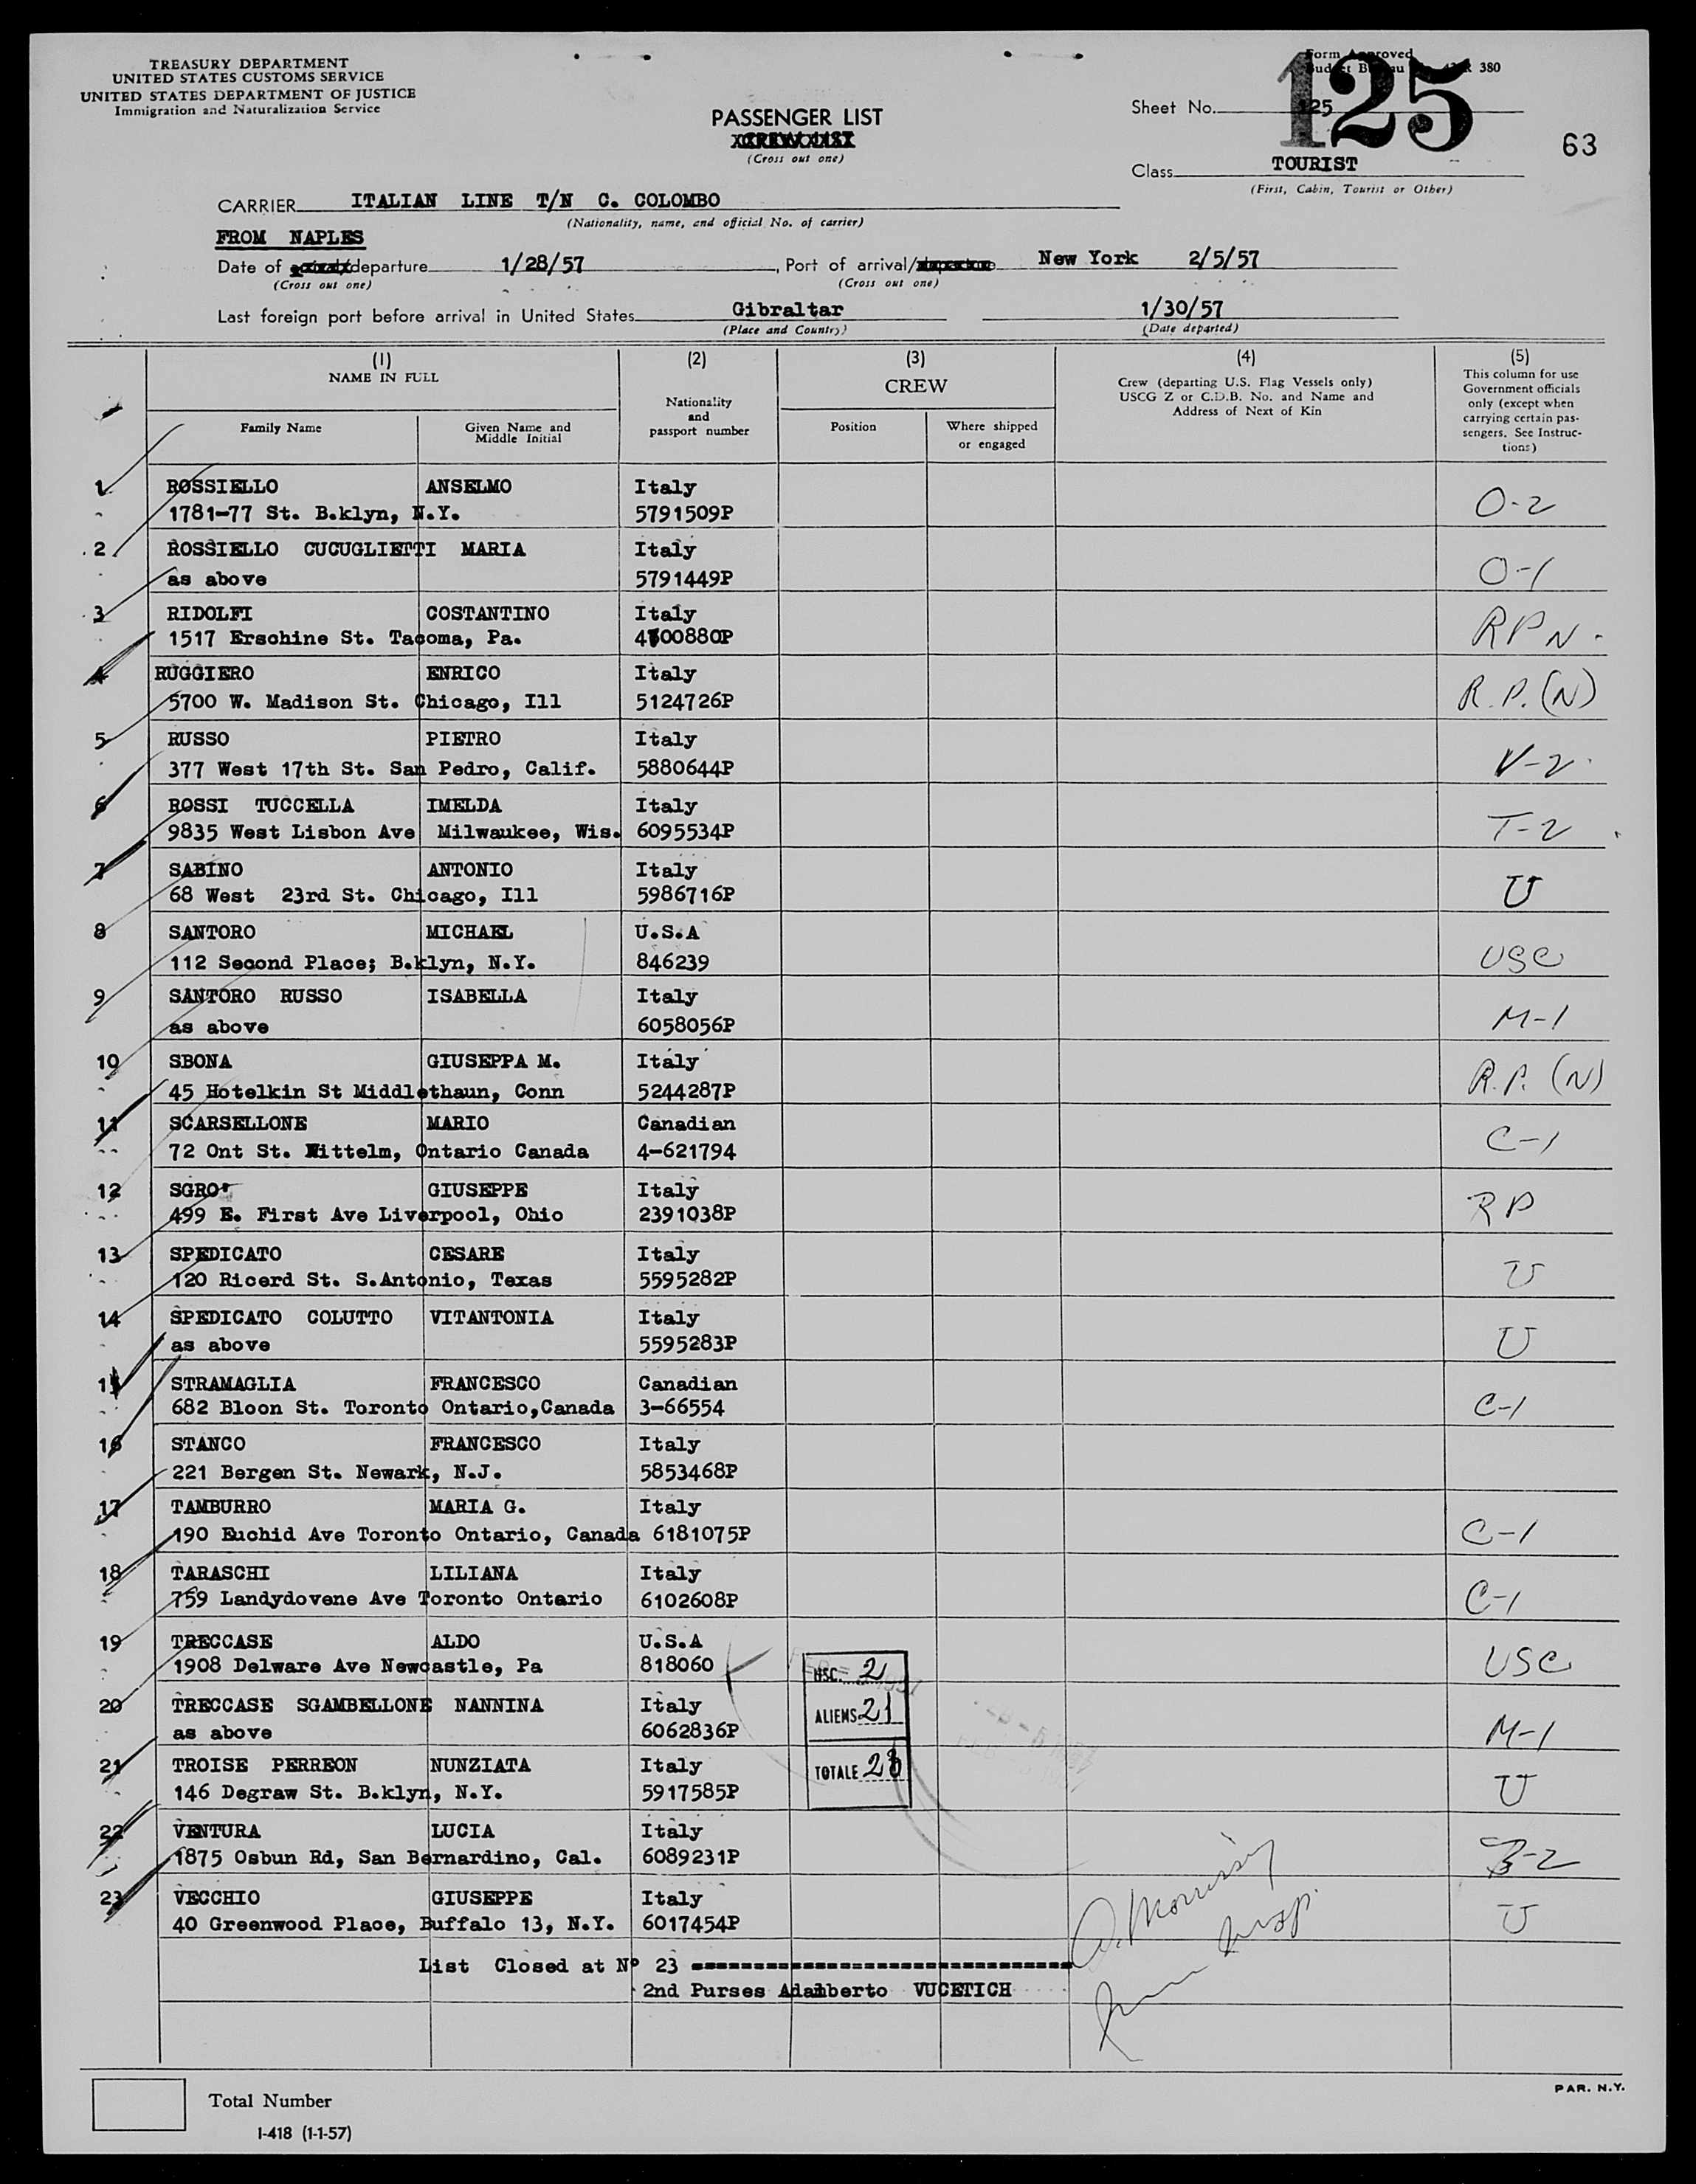 TREASURY DEPARTMENT
UNITED STATES CUSTOMS SERVICE
UNITED STATES DEPARTMENT OF JUSTICE
Immigration and Naturalization Service
PASSENGER LIST
CREW LIST
(Cross out one)
Form Approved
380
Sheet No. 125
125
63
Class TOURIST
(First, Cabin, Tourist or Other)
CARRIER ITALIAN LINE T/N C. COLOMBO
(Nationality, name, and official No. of carrier)
FROM NAPLES
Date of arrival/departure 1/28/57, Port of arrival/departure New York 2/5/57
(Cross out one) (Cross out one)
Last foreign port before arrival in United States Gibraltar 1/30/57
(Place and Country) (Date departed)
(1) (2) (3) (4) (5)
NAME IN FULL
Family Name
Given Name and
Middle Initial
Nationality
and
passport number
CREW
Position
Where shipped
or engaged
Crew (departing U.S. Flag Vessels only)
USCG Z or C.D.B. No. and Name and
Address of Next of Kin
This column for use
Government officials
only (except when
carrying certain pas-
sengers. See Instruc-
tions)
1 ROSSIELLO ANSELMO Italy
1781-77 St. B.klyn, N.Y. 5791509P O-2
2 ROSSIELLO CUCUGLIETTI MARIA Italy
as above 5791449P O-1
3 RIDOLFI COSTANTINO Italy
1517 Erschine St. Tacoma, Pa. 4 00880P RPN.
4 RUGGIERO ENRICO Italy
5700 W. Madison St. Chicago, Ill 5124726P R.P.(N)
5 RUSSO PIETRO Italy
377 West 17th St. San Pedro, Calif. 5880644P V-2
6 ROSSI TUCCELLA IMELDA Italy
9835 West Lisbon Ave Milwaukee, Wis. 6095534P T-2
7 SABINO ANTONIO Italy
68 West 23rd St. Chicago, Ill 5986716P U
8 SANTORO MICHAEL U.S.A
112 Second Place; B.klyn, N.Y. 846239 USC
9 SANTORO RUSSO ISABELLA Italy
as above 6058056P M-1
10 SBONA GIUSEPPA M. Italy
45 Hotelkin St Middlethaun, Conn 5244287P R.P. (N)
11 SCARSELLONE MARIO Canadian
72 Ont St. Nittelm, Ontario Canada 4-621794 C-1
12 SGRO' GIUSEPPE Italy
499 E. First Ave Liverpool, Ohio 2391038P RP
13 SPEDICATO CESARE Italy
120 Ricerd St. S.Antonio, Texas 5595282P U
14 SPEDICATO COLUTTO VITANTONIA Italy
as above 5595283P U
15 STRAMAGLIA FRANCESCO Canadian
682 Bloon St. Toronto Ontario,Canada 3-66554 C-1
16 STANCO FRANCESCO Italy
221 Bergen St. Newark, N.J. 5853468P
17 TAMBURRO MARIA G. Italy
190 Euchid Ave Toronto Ontario, Canada 6181075P C-1
18 TARASCHI LILIANA Italy
759 Landydovene Ave Toronto Ontario 6102608P C-1
19 TRECCASE ALDO U.S.A
1908 Delware Ave Newcastle, Pa 818060 USC
20 TRECCASE SGAMBELLONE NANNINA Italy
as above 6062836P M-1
21 TROISE PERREON NUNZIATA Italy
146 Degraw St. B.klyn, N.Y. 5917585P U
22 VENTURA LUCIA Italy
1875 Osbun Rd, San Bernardino, Cal. 6089231P 3-2
23 VECCHIO GIUSEPPE Italy
40 Greenwood Place, Buffalo 13, N.Y. 6017454P U
USC. 2
ALIENS 21
TOTALE 23
List Closed at Nº 23
2nd Purses Adalberto VUCETICH
Total Number
I-418 (1-1-57)
PAR. N.Y.